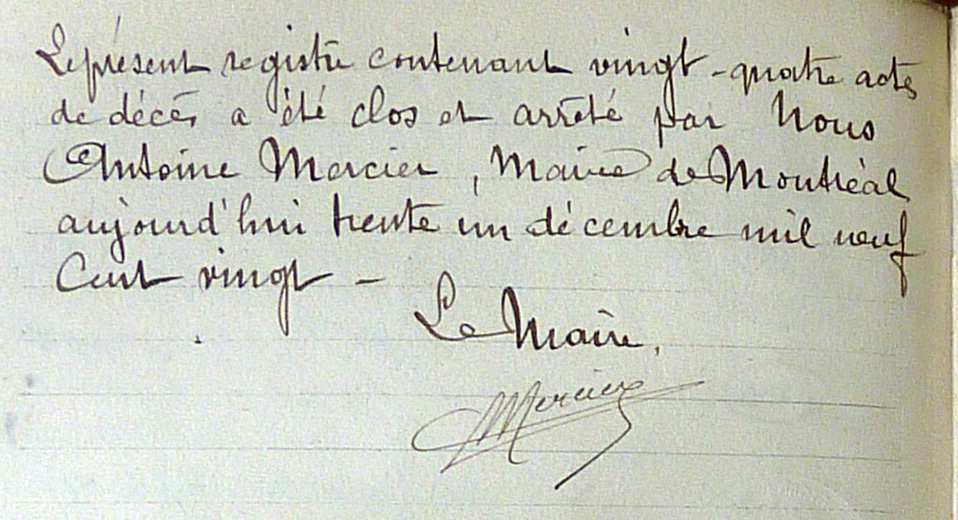 Le présent registre contenant vingt-quatre actes
de décès a été clos et arrêté par Nous
Antoine Mercier, Maire de Montréal
aujourd'hui trente un décembre mil neuf
Cent vingt –
Le Maire,
Mercier